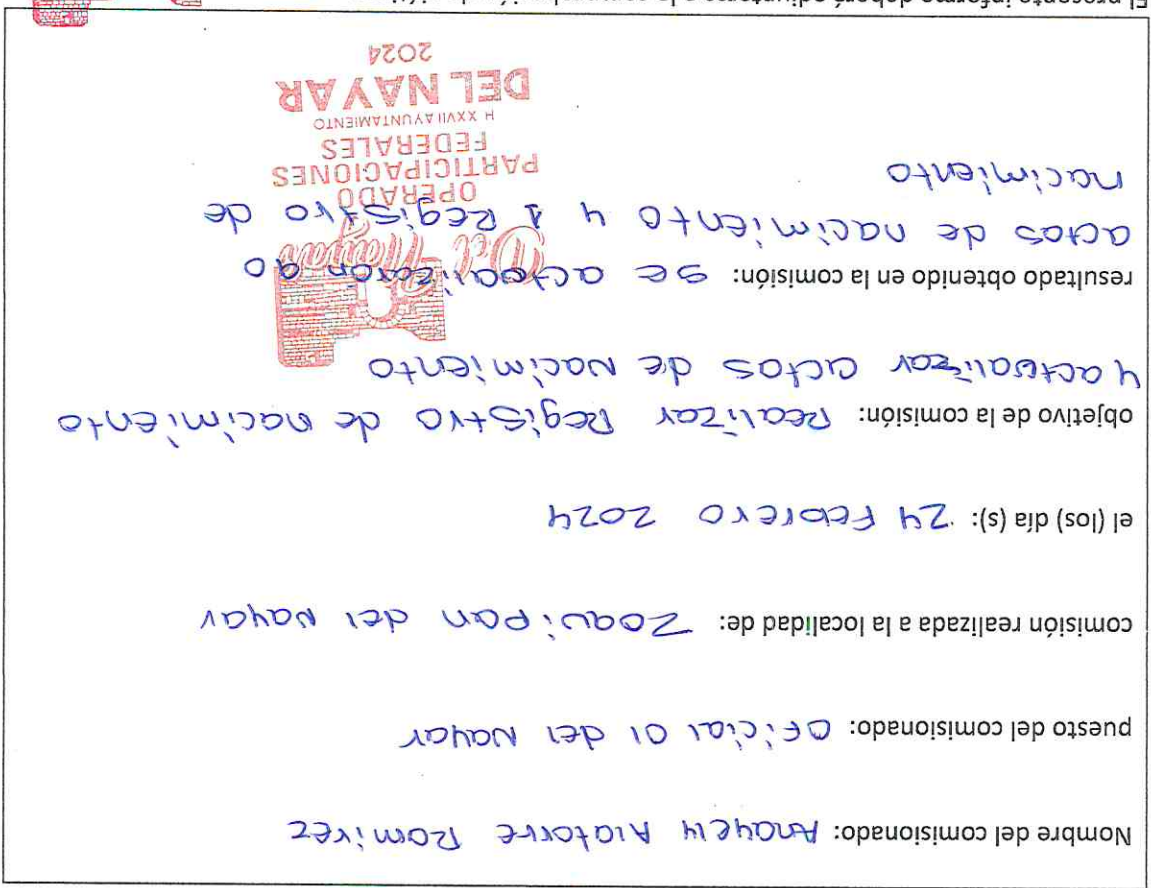 Nombre del comisionado: Anayely Alatorre Ramirez
puesto del comisionado: Oficial 01 del Nayar
comisión realizada a la localidad de: Zoquipan del Nayar
el (los) día (s): 24 Febrero 2024
objetivo de la comisión: Realizar Registro de nacimiento
y actualizar actas de Nacimiento
resultado obtenido en la comisión: se actualizaron 90
actas de nacimiento y 1 Registro de
nacimiento
Del Nayar
OPERADO
PARTICIPACIONES
FEDERALES
H XXVII AYUNTAMIENTO
DEL NAYAR
2024
El presente informe deberá adjuntarse a la